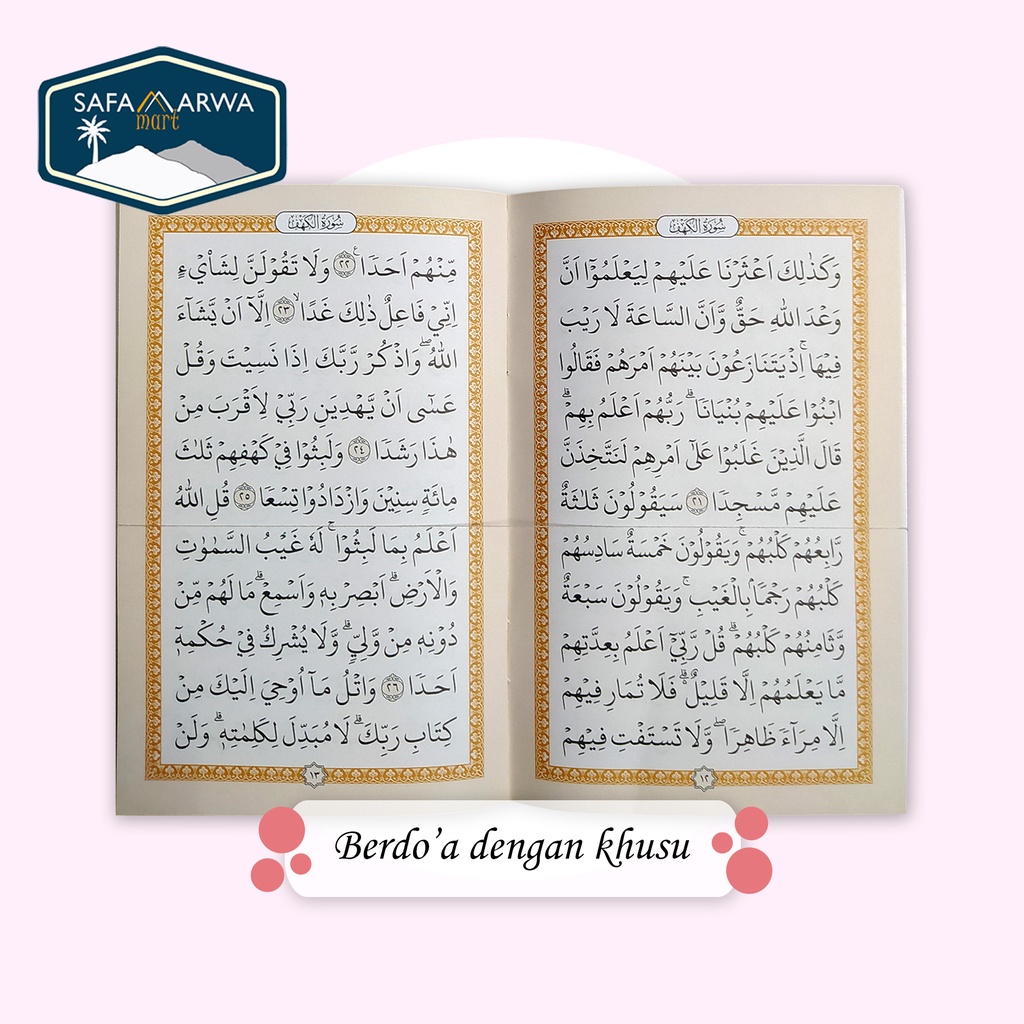 SAFA MARWA
mart
سُورَةُ الْكَهْفِ
وَكَذٰلِكَ اَعْثَرْنَا عَلَيْهِمْ لِيَعْلَمُوْٓا اَنَّ
وَعْدَ اللّٰهِ حَقٌّ وَّاَنَّ السَّاعَةَ لَا رَيْبَ
فِيْهَاۚ اِذْ يَتَنَازَعُوْنَ بَيْنَهُمْ اَمْرَهُمْ فَقَالُوا
ابْنُوْا عَلَيْهِمْ بُنْيَانًاۗ رَبُّهُمْ اَعْلَمُ بِهِمْۗ
قَالَ الَّذِيْنَ غَلَبُوْا عَلٰٓى اَمْرِهِمْ لَنَتَّخِذَنَّ
عَلَيْهِمْ مَّسْجِدًا ٢١ سَيَقُوْلُوْنَ ثَلٰثَةٌ
رَّابِعُهُمْ كَلْبُهُمْۚ وَيَقُوْلُوْنَ خَمْسَةٌ سَادِسُهُمْ
كَلْبُهُمْ رَجْمًاۢ بِالْغَيْبِۚ وَيَقُوْلُوْنَ سَبْعَةٌ
وَّثَامِنُهُمْ كَلْبُهُمْۗ قُلْ رَّبِّيْٓ اَعْلَمُ بِعِدَّتِهِمْ
مَّا يَعْلَمُهُمْ اِلَّا قَلِيْلٌ ۗ فَلَا تُمَارِ فِيْهِمْ
اِلَّا مِرَاۤءً ظَاهِرًاۖ وَّلَا تَسْتَفْتِ فِيْهِمْ
١٢
سُورَةُ الْكَهْفِ
مِّنْهُمْ اَحَدًا ࣖ ٢٢ وَلَا تَقُوْلَنَّ لِشَا۟يْءٍ
اِنِّيْ فَاعِلٌ ذٰلِكَ غَدًاۙ ٢٣ اِلَّآ اَنْ يَّشَاۤءَ
اللّٰهُ ۖوَاذْكُرْ رَّبَّكَ اِذَا نَسِيْتَ وَقُلْ
عَسٰٓى اَنْ يَّهْدِيَنِ رَبِّيْ لِاَقْرَبَ مِنْ
هٰذَا رَشَدًا ٢٤ وَلَبِثُوْا فِيْ كَهْفِهِمْ ثَلٰثَ
مِائَةٍ سِنِيْنَ وَازْدَادُوْا تِسْعًا ٢٥ قُلِ اللّٰهُ
اَعْلَمُ بِمَا لَبِثُوْاۚ لَهٗ غَيْبُ السَّمٰوٰتِ
وَالْاَرْضِۗ اَبْصِرْ بِهٖ وَاَسْمِعْۗ مَا لَهُمْ مِّنْ
دُوْنِهٖ مِنْ وَّلِيٍّۗ وَّلَا يُشْرِكُ فِيْ حُكْمِهٖٓ
اَحَدًا ٢٦ وَاتْلُ مَآ اُوْحِيَ اِلَيْكَ مِنْ
كِتَابِ رَبِّكَۗ لَا مُبَدِّلَ لِكَلِمٰتِهٖۗ وَلَنْ
١٣
Berdo’a dengan khusu